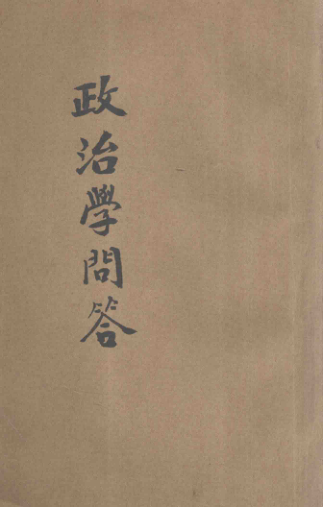 政治學問答